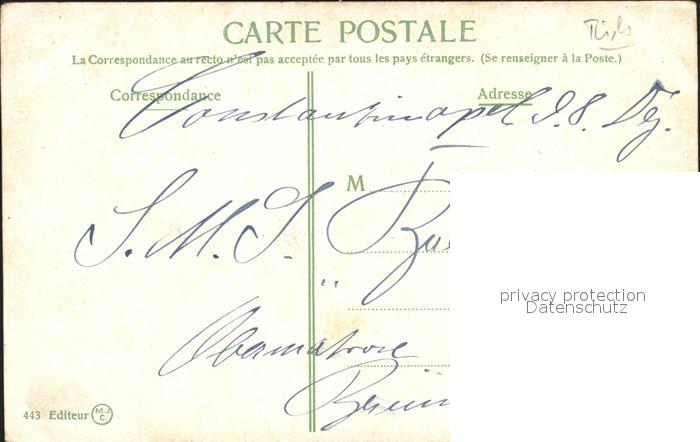 CARTE POSTALE
La Correspondance au recto n'est pas acceptée par tous les pays étrangers. (Se renseigner à la Poste.)
Correspondance
Adresse
Constantinopel 9.8. Dez.
M
S.M.S.
Obermatrose
privacy protection
Datenschutz
443 Editeur M.J.C.